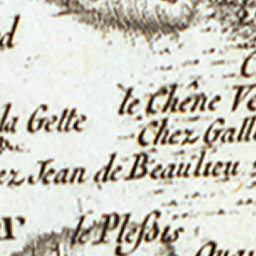 d
la Gette
le Chêne Ve
Chez Gall
ez Jean de Beaulieu
le Plessis